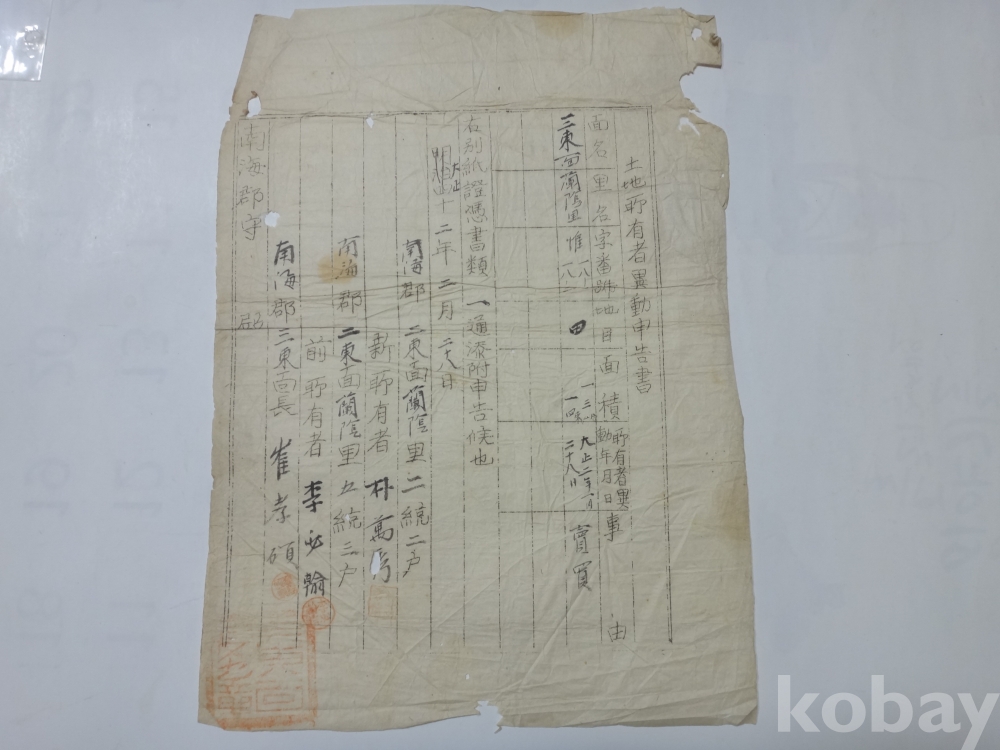 土地所有者異動申告書
面名 里名 字番號 地目 面積 所有者異動年月日 事由
三東面 蘭陰里 惟 一八一 一八二 田 大正二年一月二十八日 賣買
右別紙證憑書類一通添附申告候也
大正 二年二月二十八日
南海郡二東面蘭陰里二統二戶
新所有者 朴萬
南海郡二東面蘭陰里五統三戶
前所有者 李 翰
南海郡三東面長 崔孝碩
南海郡守 殿
kobay